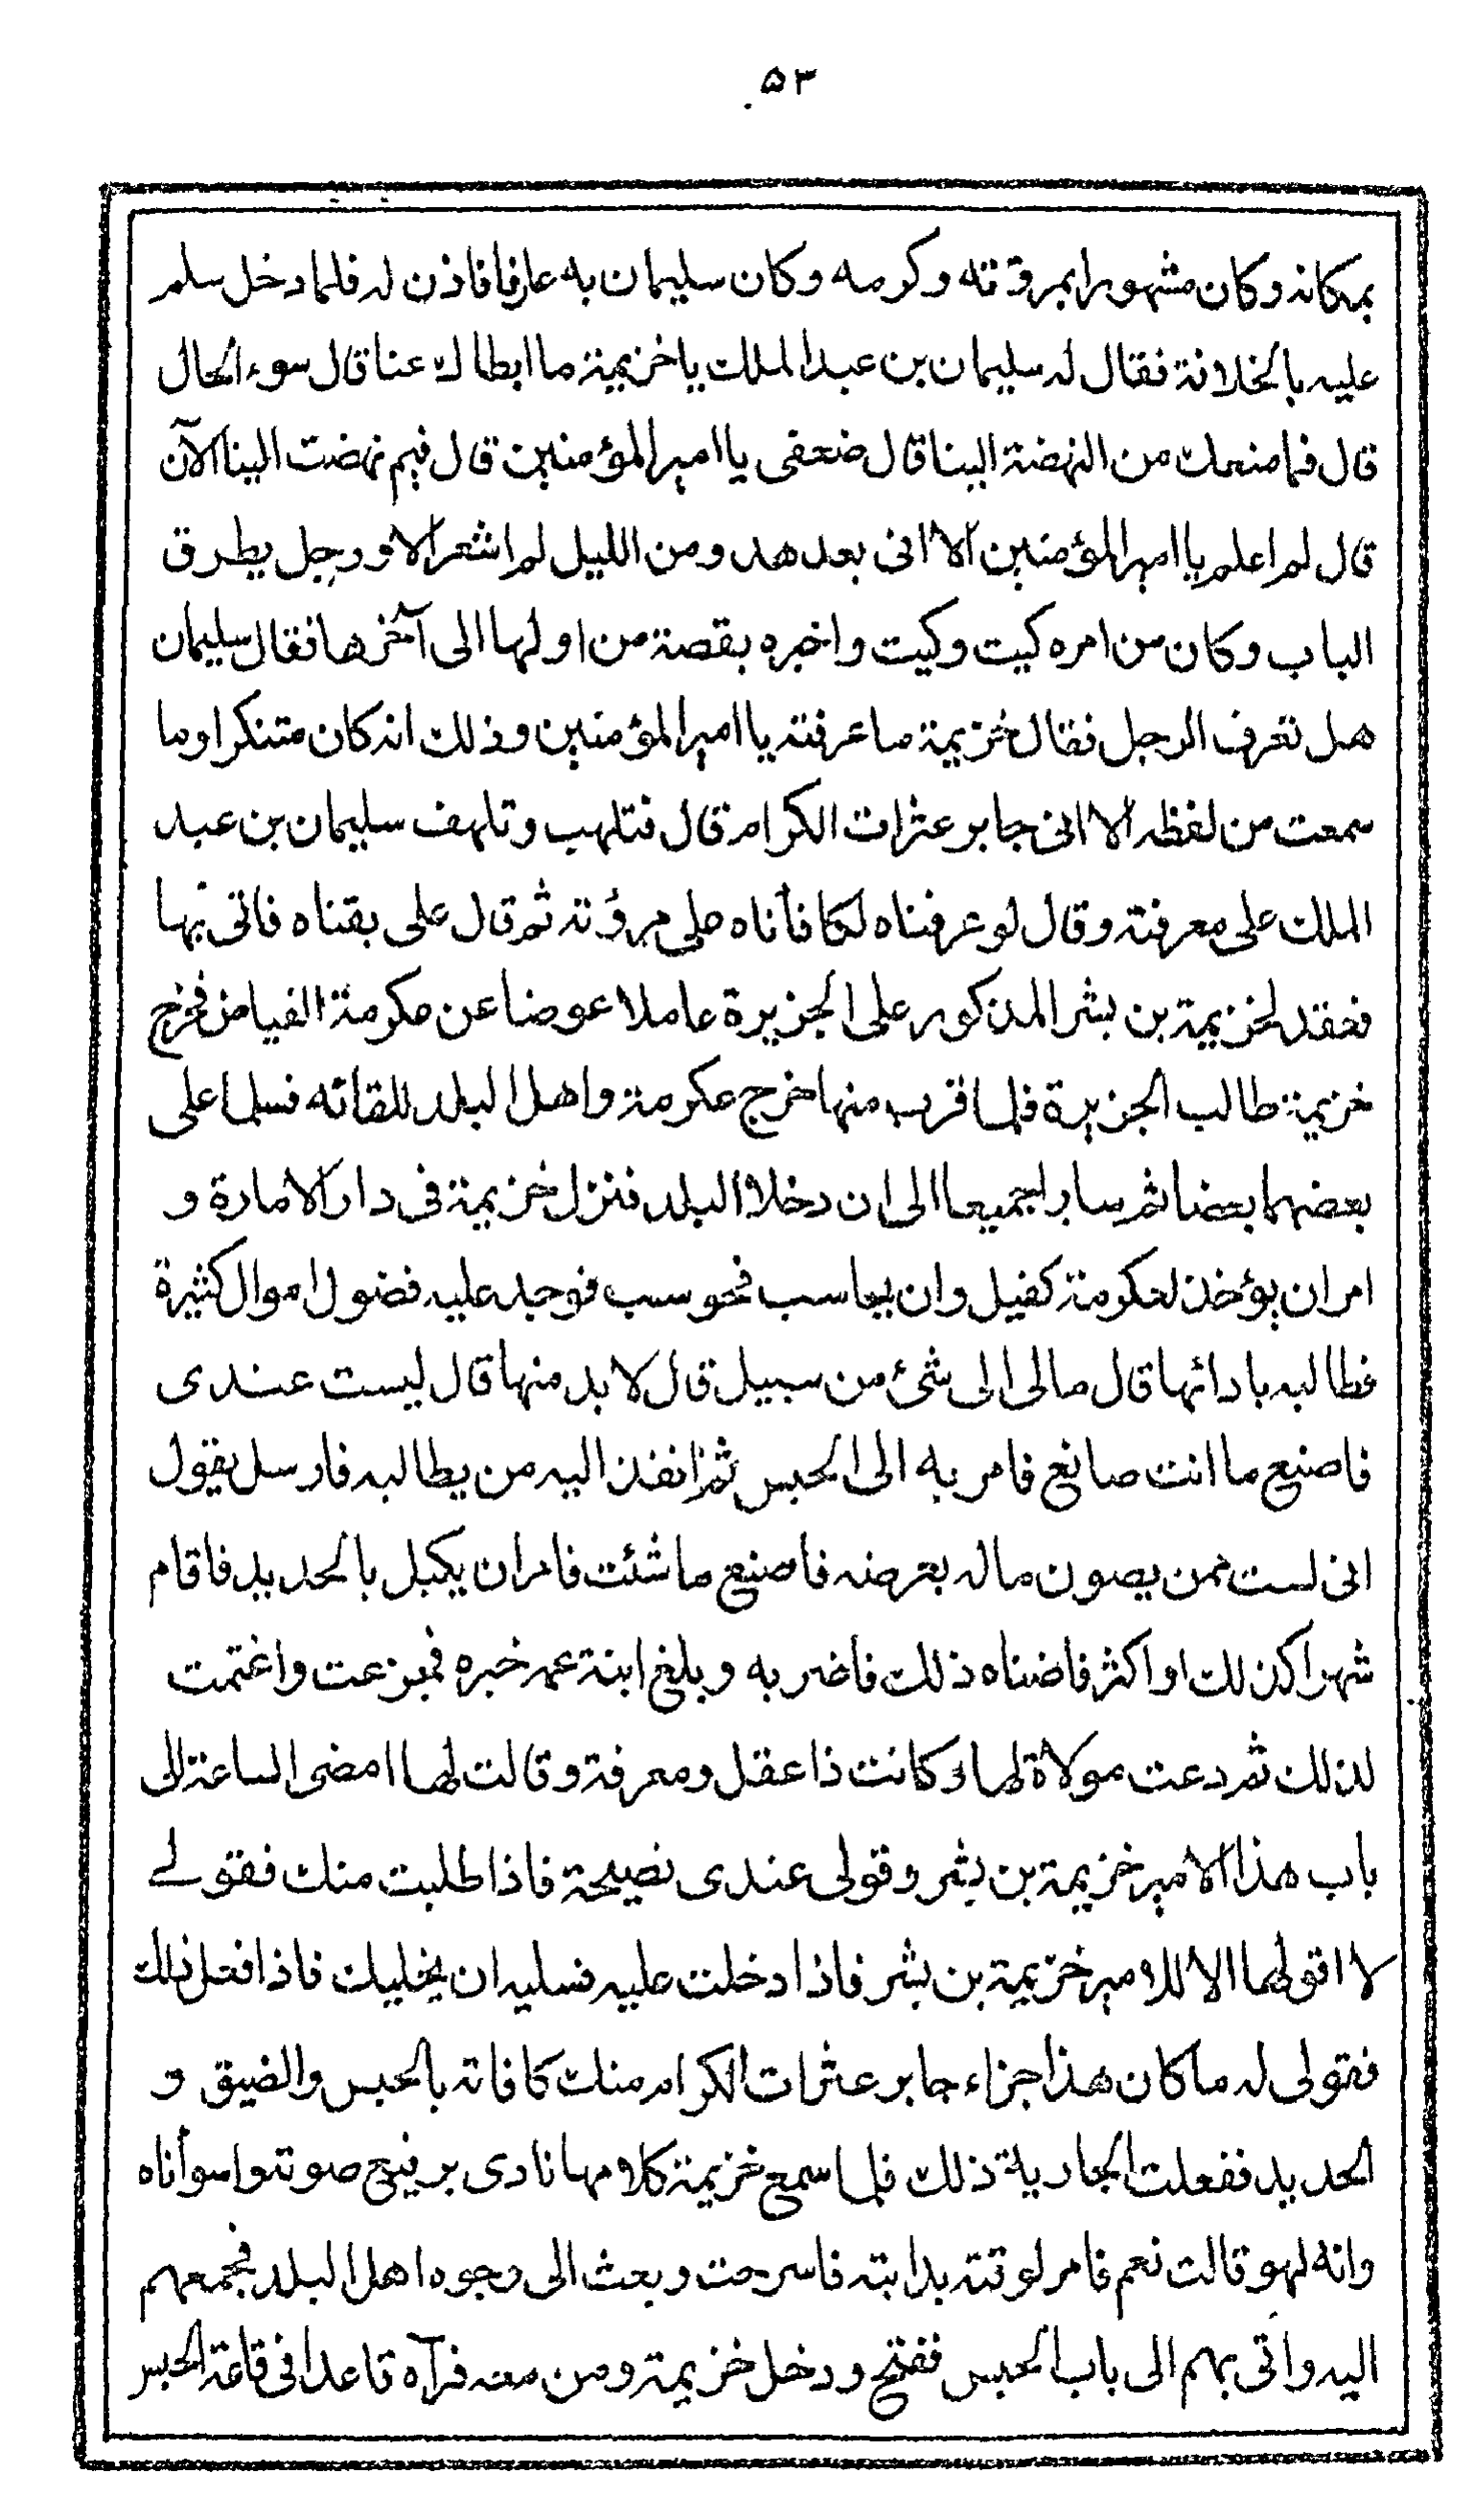 ۵۳
بمكانه وكان مشهورا بمروّته وكرمه وكان سليمان به عارفا فاذن له فلما دخل سلم
عليه بالخلافة فقال له سليمان بن عبد الملك يا خزيمة ما ابطاك عنا قال سوء الحال
قال فما منعك من النهضة الينا قال ضعفى يا امير المؤمنين قال فبم نهضت الينا الآن
قال لم اعلم يا امير المؤمنين الا انى بعد هدو من الليل لم اشعر الا ورجل يطرق
الباب وكان من امره كيت وكيت واخبره بقصة من اولها الى آخرها فقال سليمان
هل تعرف الرجل فقال خزيمة ما عرفته يا امير المؤمنين وذلك انه كان متنكرا وما
سمعت من لفظه الا انى جابر عثرات الكرام قال فتلهب وتلهف سليمان بن عبد
الملك على معرفته وقال لو عرفناه لكافأناه على مرؤته ثم قال على بقناه فاتى بها
فعقد لخزيمة بن بشر المذكور على الجزيرة عاملا عوضا عن عكرمة الفياض فخرج
خزيمة طالب الجزيرة فلما قرب منها خرج عكرمة واهل البلد للقائه فسلما على
بعضهما بعضا ثم سارا جميعا الى ان دخلا البلد فنزل خزيمة فى دار الامارة و
امر ان يؤخذ لعكرمة كفيل وان يحاسب فحوسب فوجد عليه فضول اموال كثيرة
فطالبه بادائها قال مالى الى شئ من سبيل قال لا بد منها قال ليست عندى
فاصنع ما انت صانع فامر به الى الحبس ثم انفذ اليه من يطالبه فارسل يقول
انى لست ممن يصون ماله بعرضه فاصنع ما شئت فامر ان يكبل بالحديد فاقام
شهرا كذلك او اكثر فاضناه ذلك فاضر به وبلغ ابنة عمه خبره فجزعت واغتمت
لذلك ثم دعت مولاة لها وكانت ذا عقل ومعرفة وقالت لها امضى الساعة الى
باب هذا الامير خزيمة بن بشر وقولى عندى نصيحة فاذا طلبت منك فقولے
لا اقولها الا للامير خزيمة بن بشر فاذا دخلت عليه فسليه ان يخليك فاذا فعل ذلك
فقولى له ما كان هذا جزاء جابر عثرات الكرام منك كافاته بالحبس والضيق و
الحديد ففعلت الجارية ذلك فلما سمع خزيمة كلامها نادى برفيع صوته واسوأتاه
وانه لهو قالت نعم فامر لوقته بدابته فاسرجت وبعث الى وجوه اهل البلد فجمعهم
اليه واتى بهم الى باب الحبس ففتح ودخل خزيمة ومن معه فرآه قاعدا فى قاعة الحبس